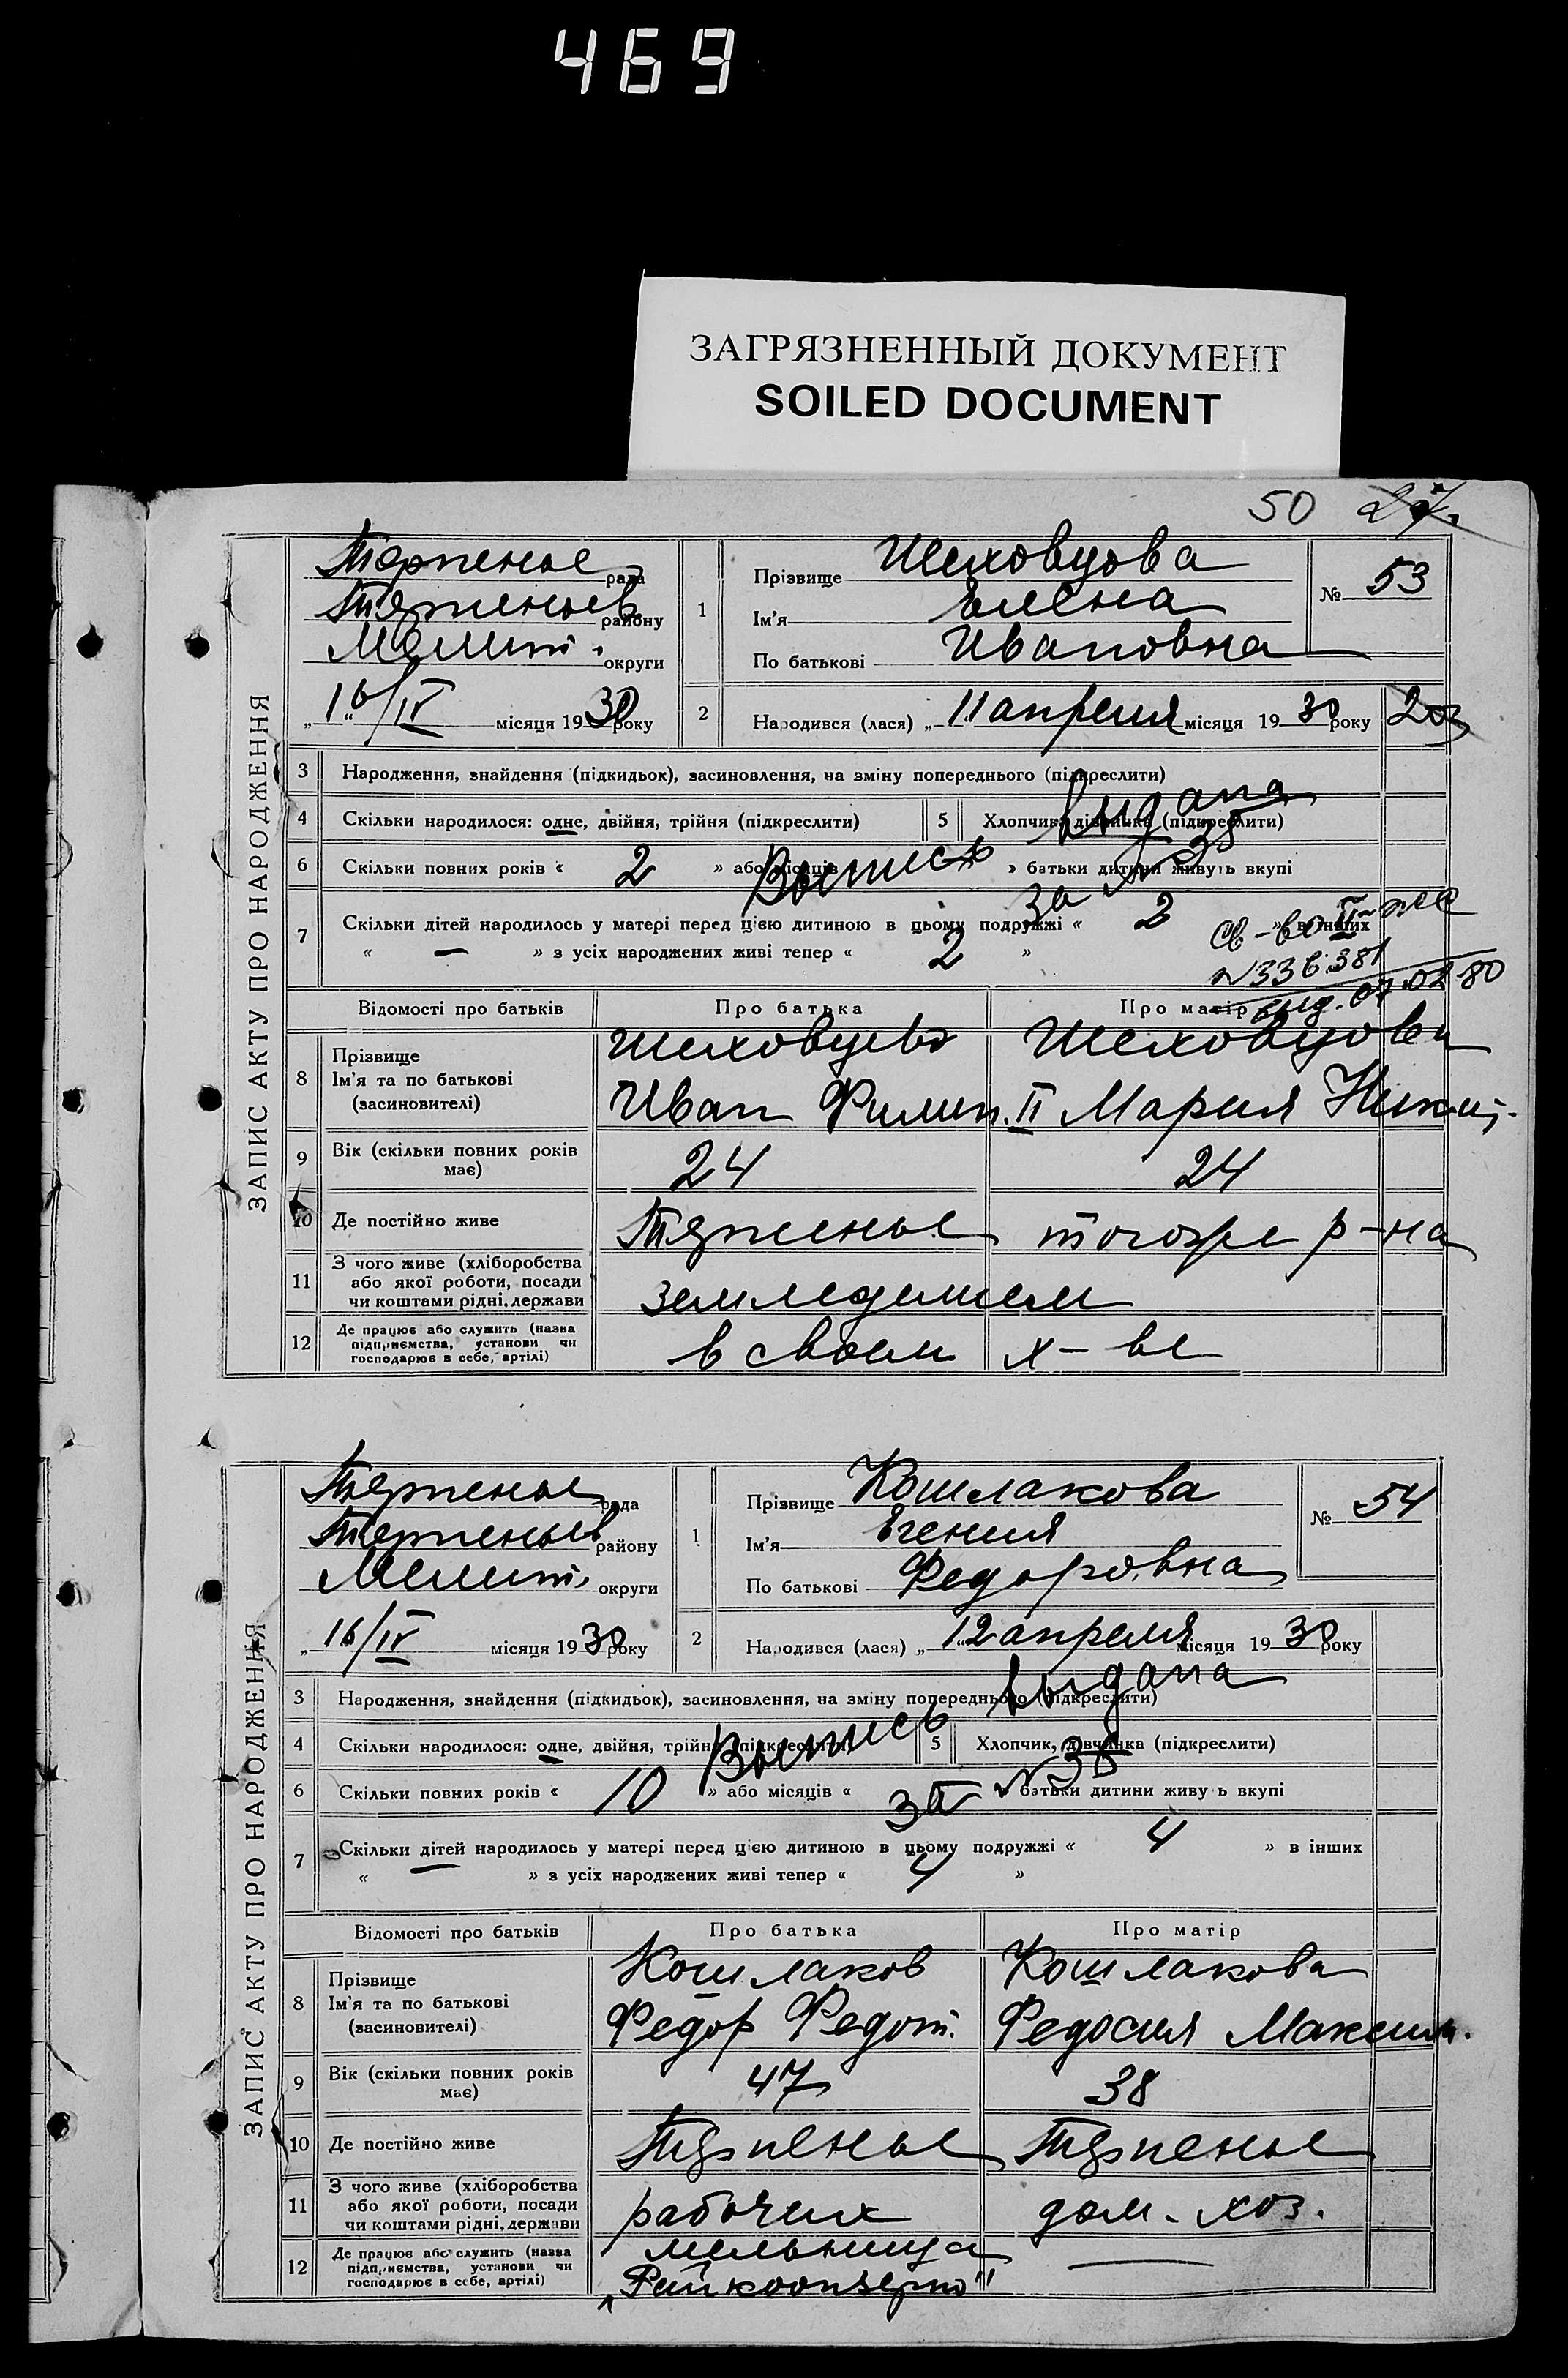 469
ЗАГРЯЗНЕННЫЙ ДОКУМЕНТ
SOILED DOCUMENT
50 27.
ЗАПИС АКТУ ПРО НАРОДЖЕННЯ
Терпенье рада
Терпеньев району
Мелит. округи
„16/IV місяця 1930 року
1 Прізвище Шеховцова
Ім'я Елена
По батькові Ивановна
№ 53
2 Народився (лася) „11 апреля місяця 1930 року
203
3 Народження, знайдення (підкидьок), засиновлення, на зміну попереднього (підкреслити)
4 Скільки народилося: одне, двійня, трійня (підкреслити) 5 Хлопчик, дівчинка (підкреслити)
6 Скільки повних років « 2 » або місяців » батьки дитини живуть вкупі
Выпись выдана
за № 35
7 Скільки дітей народилось у матері перед цією дитиною в цьому подружжі « 2 » в інших
« — » з усіх народжених живі тепер « 2 »
св-во II-
выд. 07.02.80
Відомості про батьків Про батька Про матір
8 Прізвище Ім'я та по батькові (засновителі)
Шеховцов Шеховцова
Иван Филип. II Мария Никит.
9 Вік (скільки повних років має) 24 24
10 Де постійно живе Терпенье того же р-на
11 З чого живе (хліборобства або якої роботи, посади чи коштами рідні, держави земледелием
12 Де працює або служить (назва підприємства, установи чи господарює в себе, артілі) в своем х-ве
ЗАПИС АКТУ ПРО НАРОДЖЕННЯ
Терпенье рада
Терпеньев району
Мелит. округи
„16/IV місяця 1930 року
1 Прізвище Кошлакова
Ім'я Егения
По батькові Федоровна
№ 54
2 Народився (лася) „12 апреля місяця 1930 року
3 Народження, знайдення (підкидьок), засиновлення, на зміну попереднього (підкреслити)
4 Скільки народилося: одне, двійня, трійня (підкреслити) 5 Хлопчик, дівчинка (підкреслити)
Выпись выдана
за № 36
6 Скільки повних років « 10 » або місяців « » батьки дитини живу ь вкупі
7 Скільки дітей народилось у матері перед цією дитиною в цьому подружжі « 4 » в інших
« — » з усіх народжених живі тепер « 4 »
Відомості про батьків Про батька Про матір
8 Прізвище Ім'я та по батькові (засиновителі)
Кошлаков Кошлакова
Федор Федот. Федосия Максим.
9 Вік (скільки повних років має) 47 38
10 Де постійно живе Терпенье Терпенье
11 З чого живе (хліборобства або якої роботи, посади чи коштами рідні, держави рабочих дом. хоз.
12 Де працює або служить (назва підприємства, установи чи господарює в себе, артілі) мельница —
„Райкоопзерно"